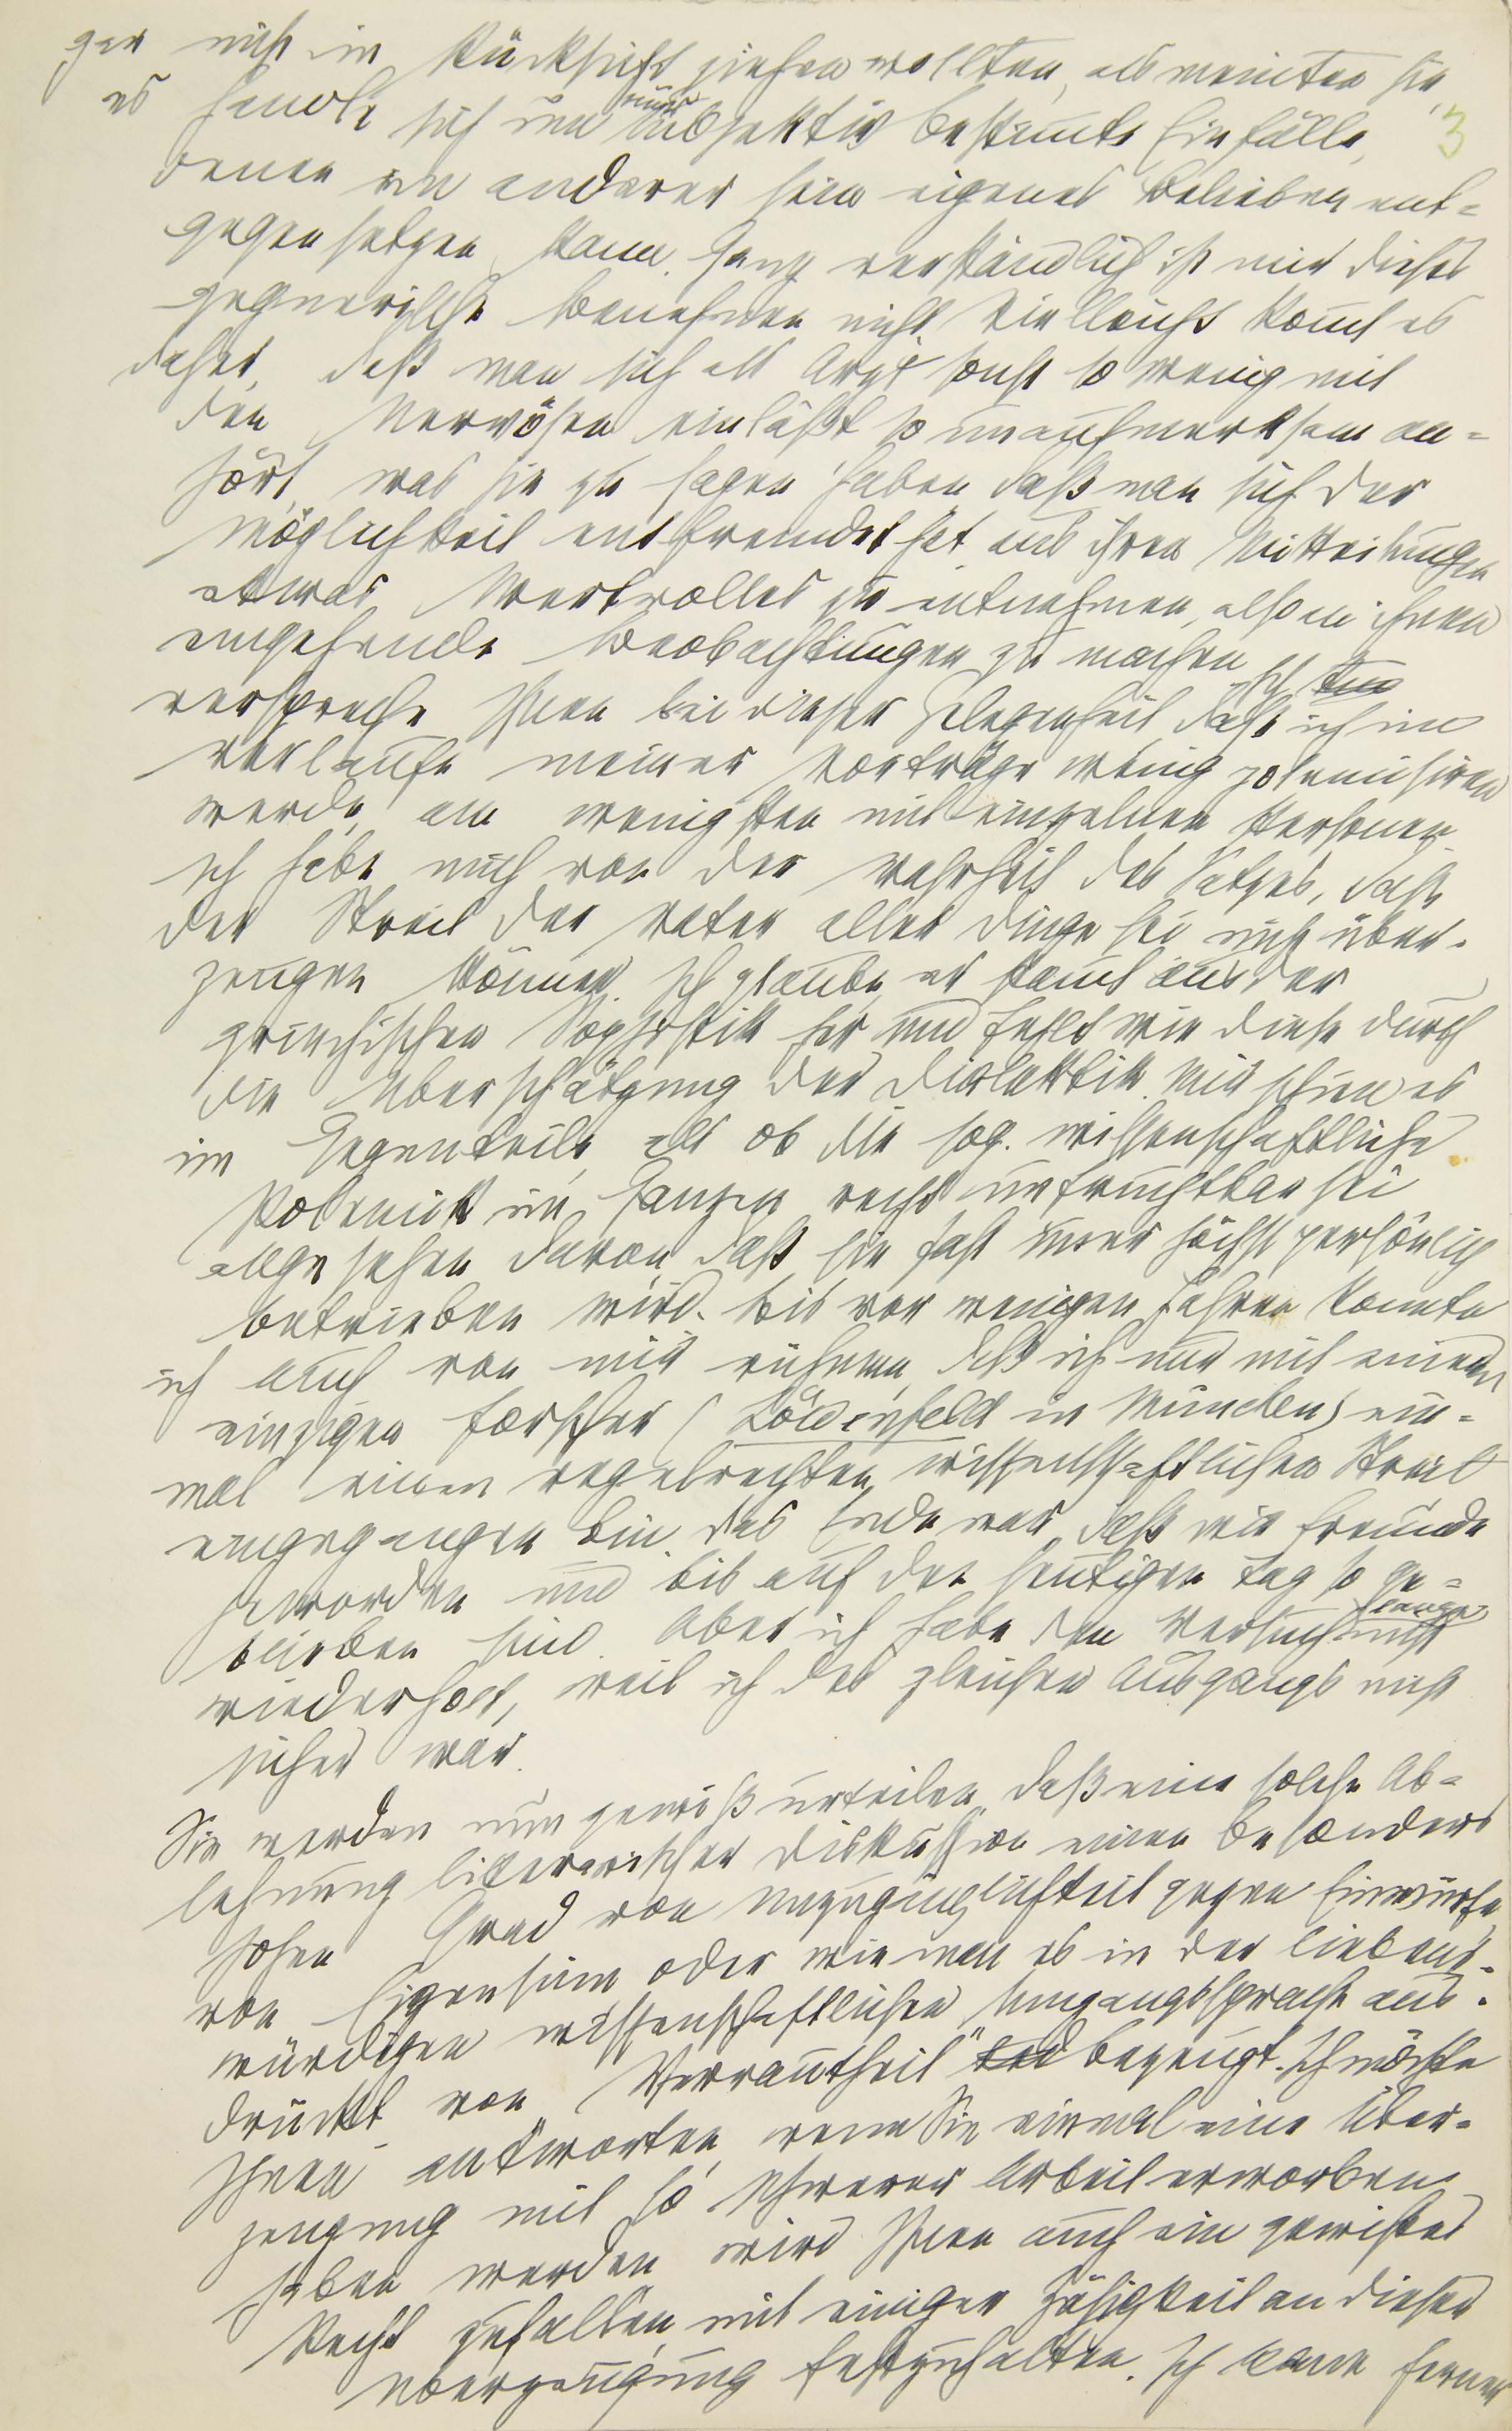 gar nicht in Rücksicht ziehen wollten, als meinten sie,
es handle sich um nur subjektiv bestimmte Einfälle, 3
denen ein anderer sein eigenes Belieben ent=
gegensetzen kann. Ganz verständlich ist mir dieses
gegnerische Benehmen nicht. Vielleicht kom̅t es
daher, daß man sich als Arzt sonst so wenig mit
den Nervösen einläßt so unaufmerksam an=
hört, was sie zu sagen haben daß man sich der
Möglichkeit entfremdet hat aus ihren Mitteilungen
etwas Wertvolles zu entnehmen, also an ihnen
eingehende Beobachtungen zu machen. Ich
verspreche Ihnen bei dieser Gelegenheit daß ich im
Verlaufe meiner Vorträge wenig polemisiren
werde, am wenigsten mit einzelnen Personen.
Ich habe mich von der Wahrheit des Satzes, daß
der Streit der Vater aller Dinge sei nicht über=
zeugen können. Ich glaube, er stam̅t aus der
griechischen Sophistik her und fehlt wie diese durch
die Überschätzung der Dialektik. Mir schien es
im Gegenteile, als ob die sog. wissenschaftliche
Polemik im Ganzen recht unfruchtbar sei
abgesehen davon daß sie fast im̅er höchst persönlich
betrieben wird. Bis vor wenigen Jahren konnte
ich auch von mir rühmen, daß ich nur mit einem
einzigen Forscher (Löwenfeld in München) ein=
mal einen regelrechten wissenschaftlichen Streit
eingegangen bin. Das Ende war, daß wir Freunde
geworden und bis auf den heutigen Tag so ge=
blieben sind. Aber ich habe den Versuch lange nicht
wiederholt, weil ich des gleichen Ausgangs nicht
sicher war.
Sie werden nun gewiß urteilen, daß eine solche Ab=
lehnung litterarischer Diskussion einen besonders
hohen Grad von Unzugänglichkeit gegen Einwürfe,
von Eigensinn oder wie man es in der liebens=
würdigen wissenschaftlichen Umgangssprache aus=
drückt von „Verranntheit“ bezeugt. Ich möchte
Ihnen antworten, wenn Sie einmal eine Über=
zeugung mit so schwerer Arbeit erworben
haben werden, wird Ihnen auch ein gewisses
Recht zufallen, mit einiger Zähigkeit an dieser
Überzeugung festzuhalten. Ich kann ferner